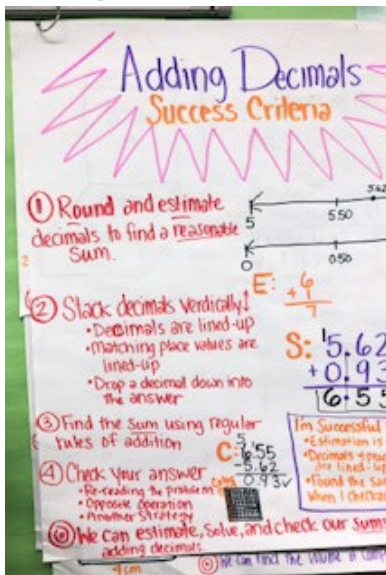 Adding Decimals
Success Criteria
① Round and estimate
decimals to find a reasonable
sum.
5
5.50
5.62
0
0.50
E: 6
+ 1
7
② Stack decimals vertically↓
•Decimals are lined-up
•Matching place values are
lined-up
•Drop a decimal down into
the answer
S: 5.62
+ 0.93
6.55
③ Find the sum using regular
rules of addition
④ Check your answer
•Re-reading the problem
•Opposite operation
•Another strategy
C: 6.55
-5.62
0.93✓
I'm Successful
•Estimation is
•Decimals
are lined-up
•Found the
when I check
We can estimate, solve, and check our sums
adding decimals.
We can find the
4cm